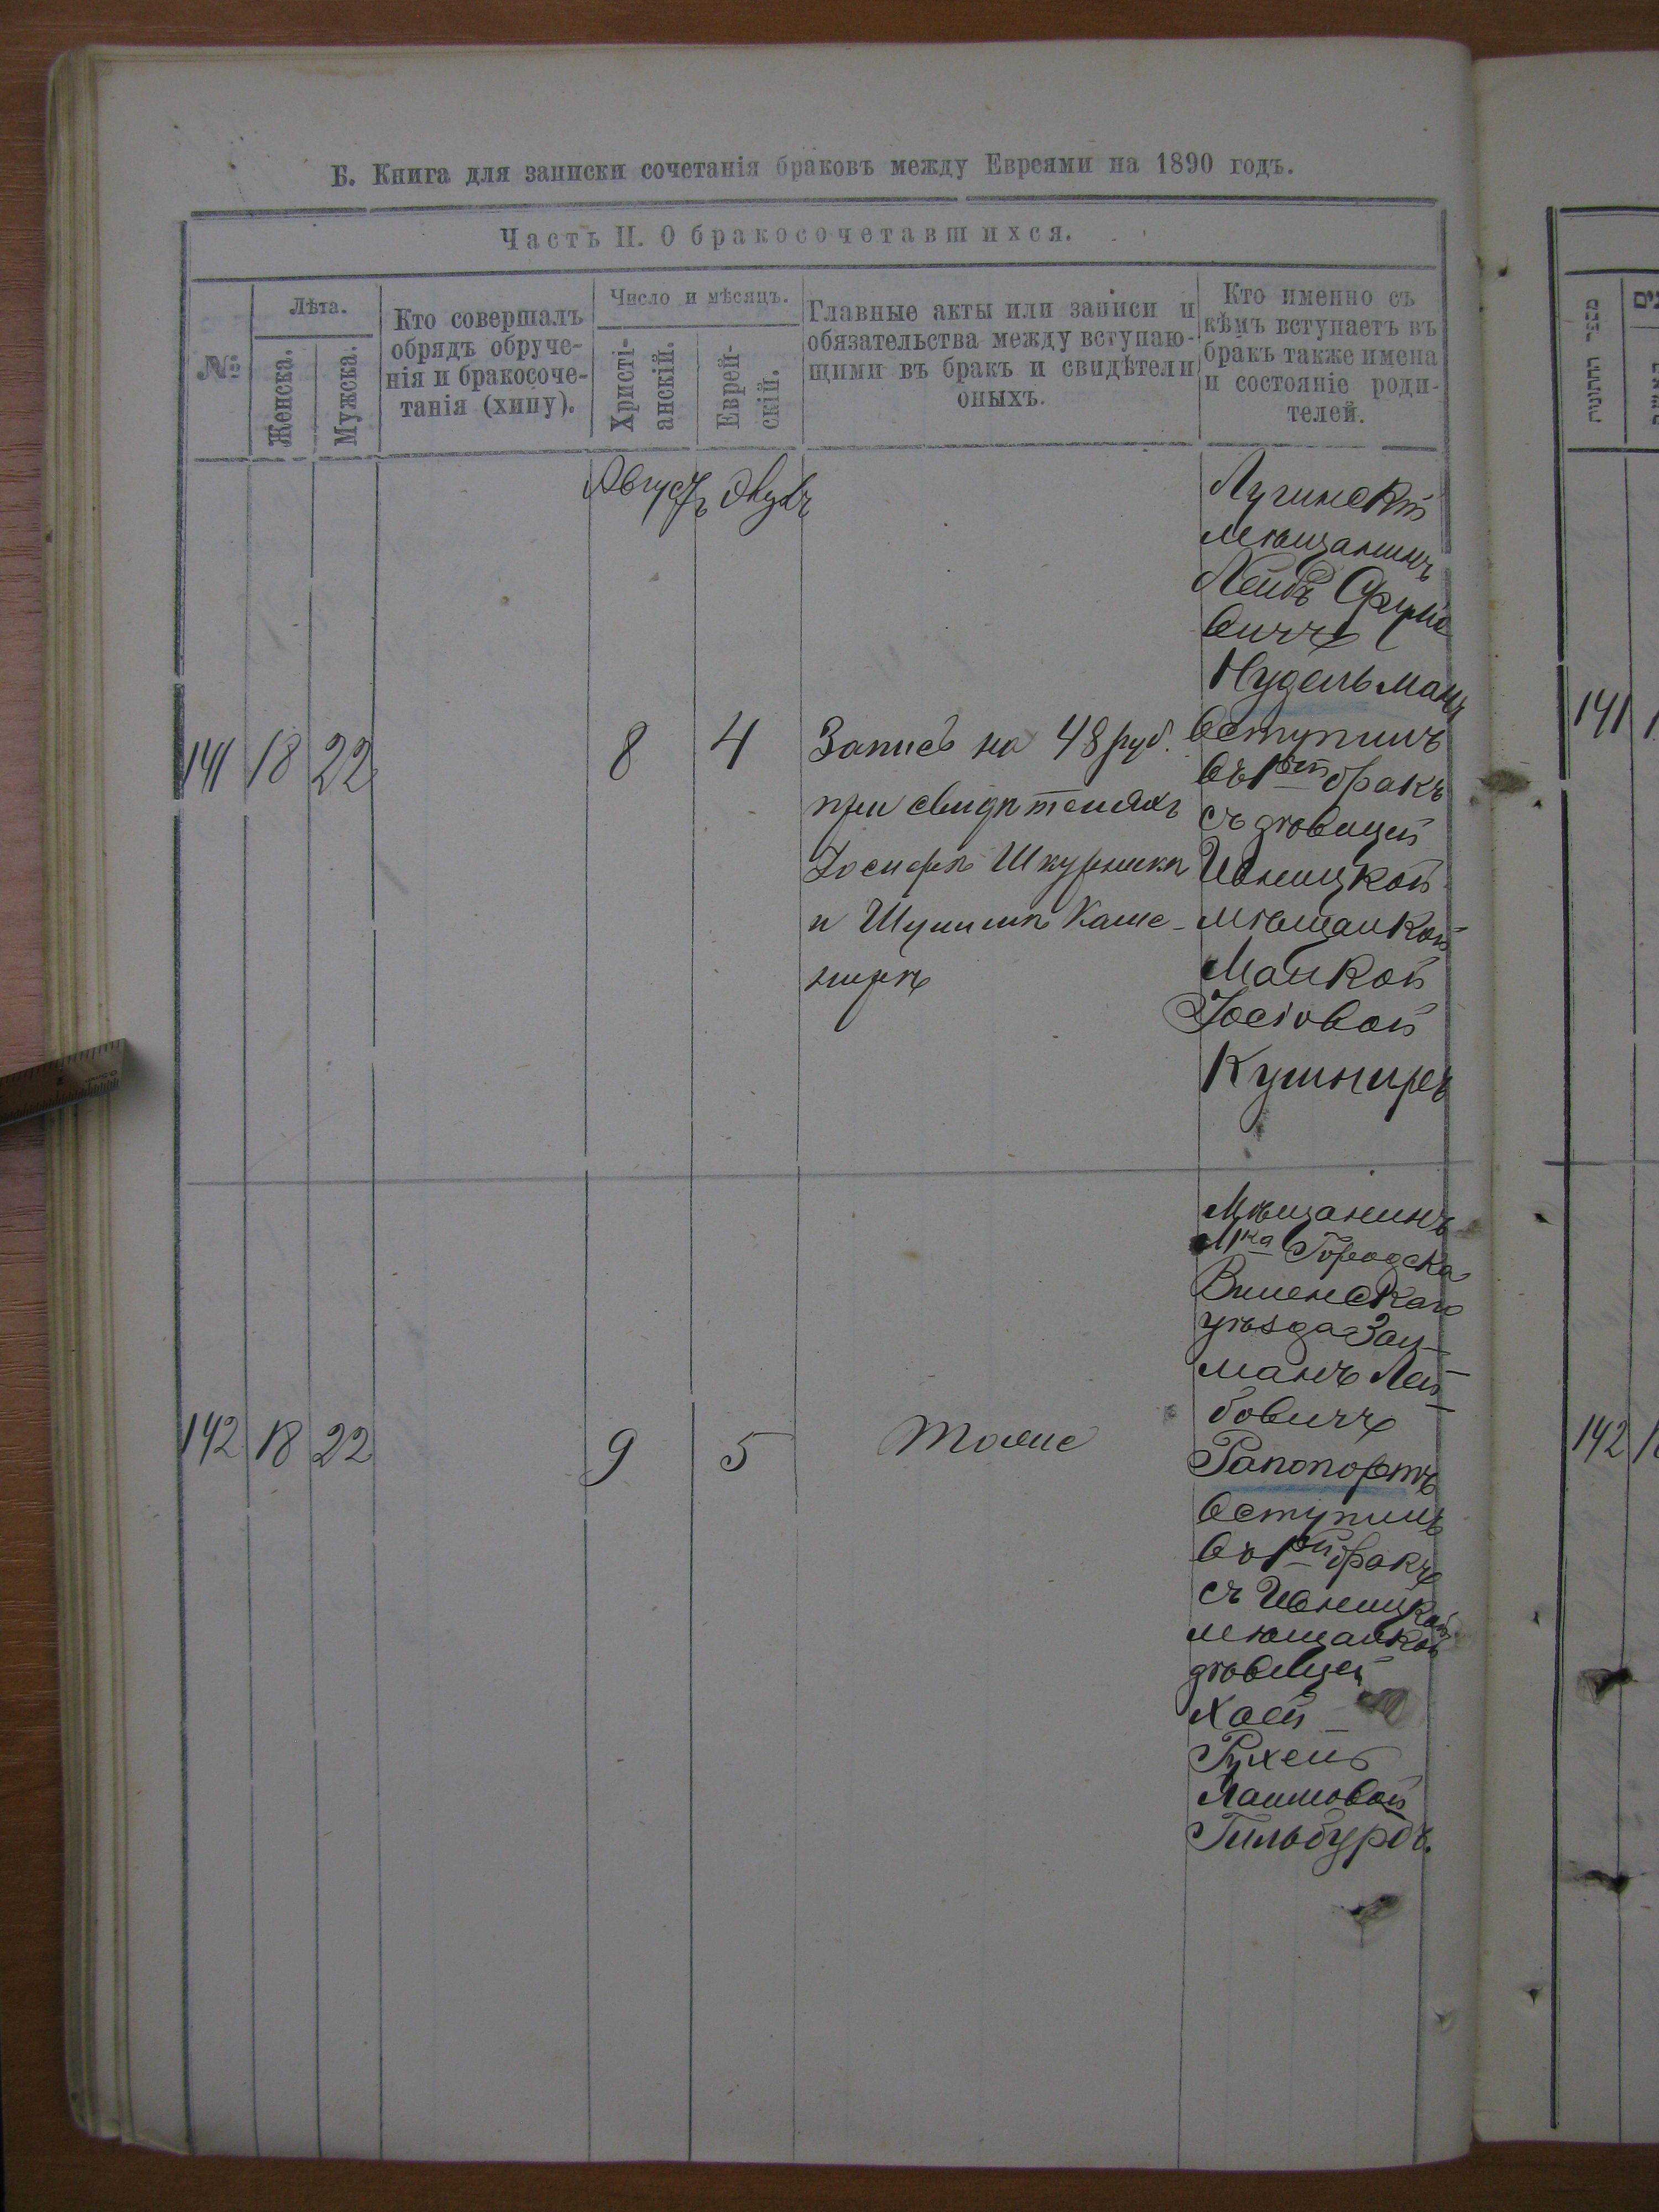 Б. Книга для записки сочетанія браковъ между Евреями на 1890 годъ.
Часть II. О бракосочетавшихся.
№
Лѣта.
Женска.
Мужска.
Кто совершалъ
обрядъ обруче-
нія и бракосоче-
танія (хипу).
Число и мѣсяцъ.
Христі-
анскій.
Еврей-
скій.
Главные акты или записи и
обязательства между вступаю-
щими въ бракъ и свидѣтели
оныхъ.
Кто именно съ
кѣмъ вступаетъ въ
бракъ также имена
и состояніе роди-
телей.
Августъ
141 18 22
8 4
Запись на 48 руб.
при свидѣтеляхъ
Іосифѣ Шкурникѣ
и Шулимѣ Каме-
нирѣ
Лугинскій
мѣщанинъ
Лейбъ Сруло
вичъ
Нудельманъ
вступилъ
въ 1ый бракъ
съ дѣвицей
Ивницкой
мѣщанкой
Манкой
Іосіовой
Кушниръ
142 18 22
9 5
тоже
Мѣщанинъ
Мка Городска
уѣзда Зел-
манъ Лей-
бовичъ
Рапопортъ
вступилъ
въ 1ый бракъ
съ Ивницкой
мѣщанкой
дѣвицей
Хаей-
Рухель
Гильбурдъ.
מספר החתונה
141
142